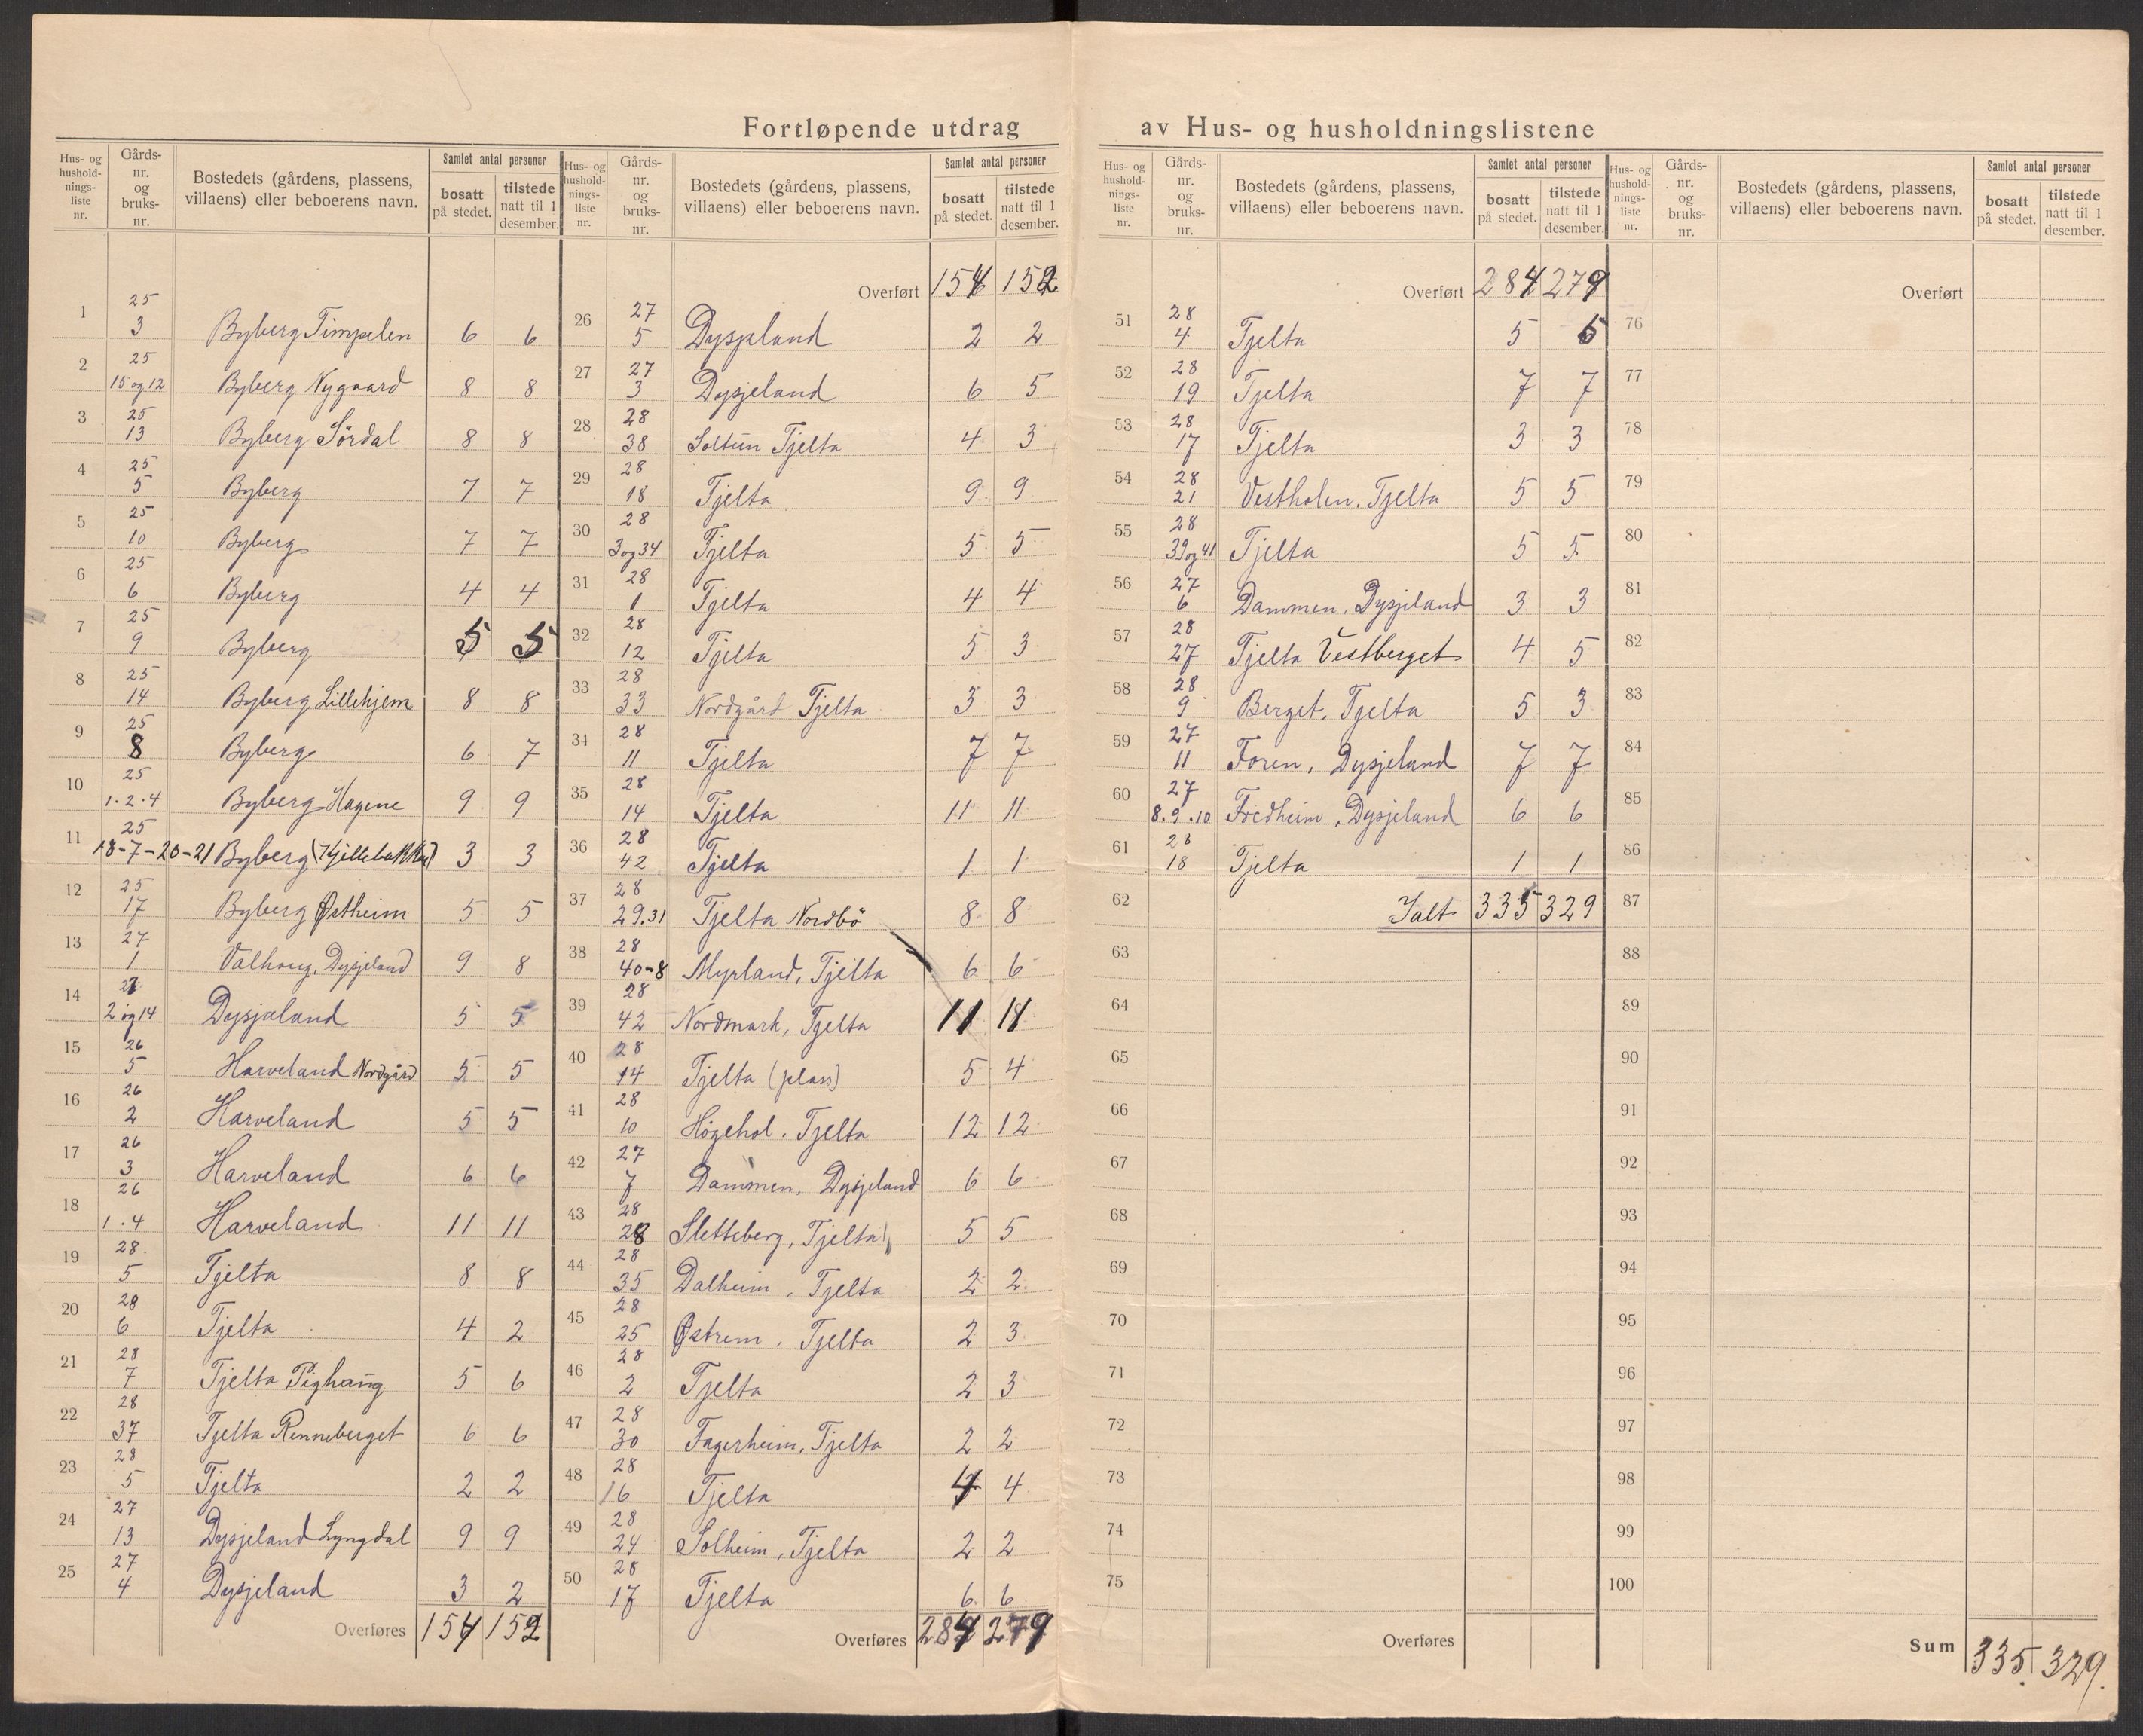 Fortløpende utdrag av Hus- og husholdningslistene
Hus- og husholdningsliste nr.
Gårds- nr. og bruks- nr.
Bostedets (gårdens, plassens, villaens) eller beboerens navn.
Samlet antal personer
bosatt på stedet.
tilstede natt til 1 desember.
1 25 3 Byberg Timpelen 6 6
2 25 15 og 12 Byberg Nygaard 8 8
3 25 13 Byberg Sørdal 8 8
4 25 5 Byberg 7 7
5 25 10 Byberg 7 7
6 25 6 Byberg 4 4
7 25 9 Byberg 5 5
8 25 14 Byberg Lillehjem 8 8
9 25 8 Byberg 6 7
10 25 1.2.4 Byberg Hagene 9 9
11 25 18-7-20-21 Byberg 3 3
12 25 17 Byberg Østheim 5 5
13 27 1 Valhaug, Dysjeland 9 8
14 27 2 og 14 Dysjeland 5 5
15 26 5 Harveland Nordgård 5 5
16 26 2 Harveland 5 5
17 26 3 Harveland 6 6
18 26 1.4 Harveland 11 11
19 28. 5 Tjelta 8 8
20 28 6 Tjelta 4 2
21 28 7 Tjelta Pighaug 5 6
22 28 37 Tjelta Renneberget 6 6
23 28 5 Tjelta 2 2
24 27 13 Dysjeland Lyngdal 9 9
25 27 4 Dysjeland 3 2
Overføres 154 152
Hus- og husholdningsliste nr.
Gårds- nr. og bruks- nr.
Bostedets (gårdens, plassens, villaens) eller beboerens navn.
Samlet antal personer
bosatt på stedet.
tilstede natt til 1 desember.
Overført 154 152
26 27 5 Dysjeland 2 2
27 27 3 Dysjeland 6 5
28 28 38 Soltun Tjelta 4 3
29 28 18 Tjelta 9 9
30 28 3 og 34 Tjelta 5 5
31 28 1 Tjelta 4 4
32 28 12 Tjelta 5 3
33 28 33 Nordgård Tjelta 3 3
34 28 11 Tjelta 7 7
35 28 14 Tjelta 11 11
36 28 42 Tjelta 1 1
37 28 29.31 Tjelta Nordbö 8 8
38 28 40-8 Myrland, Tjelta 6 6
39 28 42 Nordmark, Tjelta 11 11
40 28 14 Tjelta (plass) 5 4
41 28 10 Høgehol. Tjelta 12 12
42 27 7 Dammen, Dysjeland 6 6
43 28 28 Sletteberg, Tjelta 5 5
44 28 35 Dalheim, Tjelta 2 2
45 28 25 Østrem, Tjelta 2 3
46 28 2 Tjelta 2 3
47 28 30 Fagerheim, Tjelta 2 2
48 28 16 Tjelta 4 4
49 28 24 Solheim, Tjelta 2 2
50 28 17 Tjelta 6 6
Overføres 284 279
Hus- og husholdningsliste nr.
Gårds- nr. og bruks- nr.
Bostedets (gårdens, plassens, villaens) eller beboerens navn.
Samlet antal personer
bosatt på stedet.
tilstede natt til 1 desember.
Overført 284 279
51 28 4 Tjelta 5 5
52 28 19 Tjelta 7 7
53 28 17 Tjelta 3 3
54 28 21 Vestholen. Tjelta 5 5
55 28 39 og 41 Tjelta 5 5
56 27 6 Dammen, Dysjeland 3 3
57 28 27 Tjelta Vestberget 4 5
58 28 9 Berget, Tjelta 5 3
59 27 11 Foren, Dysjeland 7 7
60 27 8.9.10 Fredheim, Dysjeland 6 6
61 28 18 Tjelta 1 1
62 Ialt 335 329
63
64
65
66
67
68
69
70
71
72
73
74
75
Overføres
Hus- og husholdningsliste nr.
Gårds- nr. og bruks- nr.
Bostedets (gårdens, plassens, villaens) eller beboerens navn.
Samlet antal personer
bosatt på stedet.
tilstede natt til 1 desember.
Overført
76
77
78
79
80
81
82
83
84
85
86
87
88
89
90
91
92
93
94
95
96
97
98
99
100
Sum 335. 329.